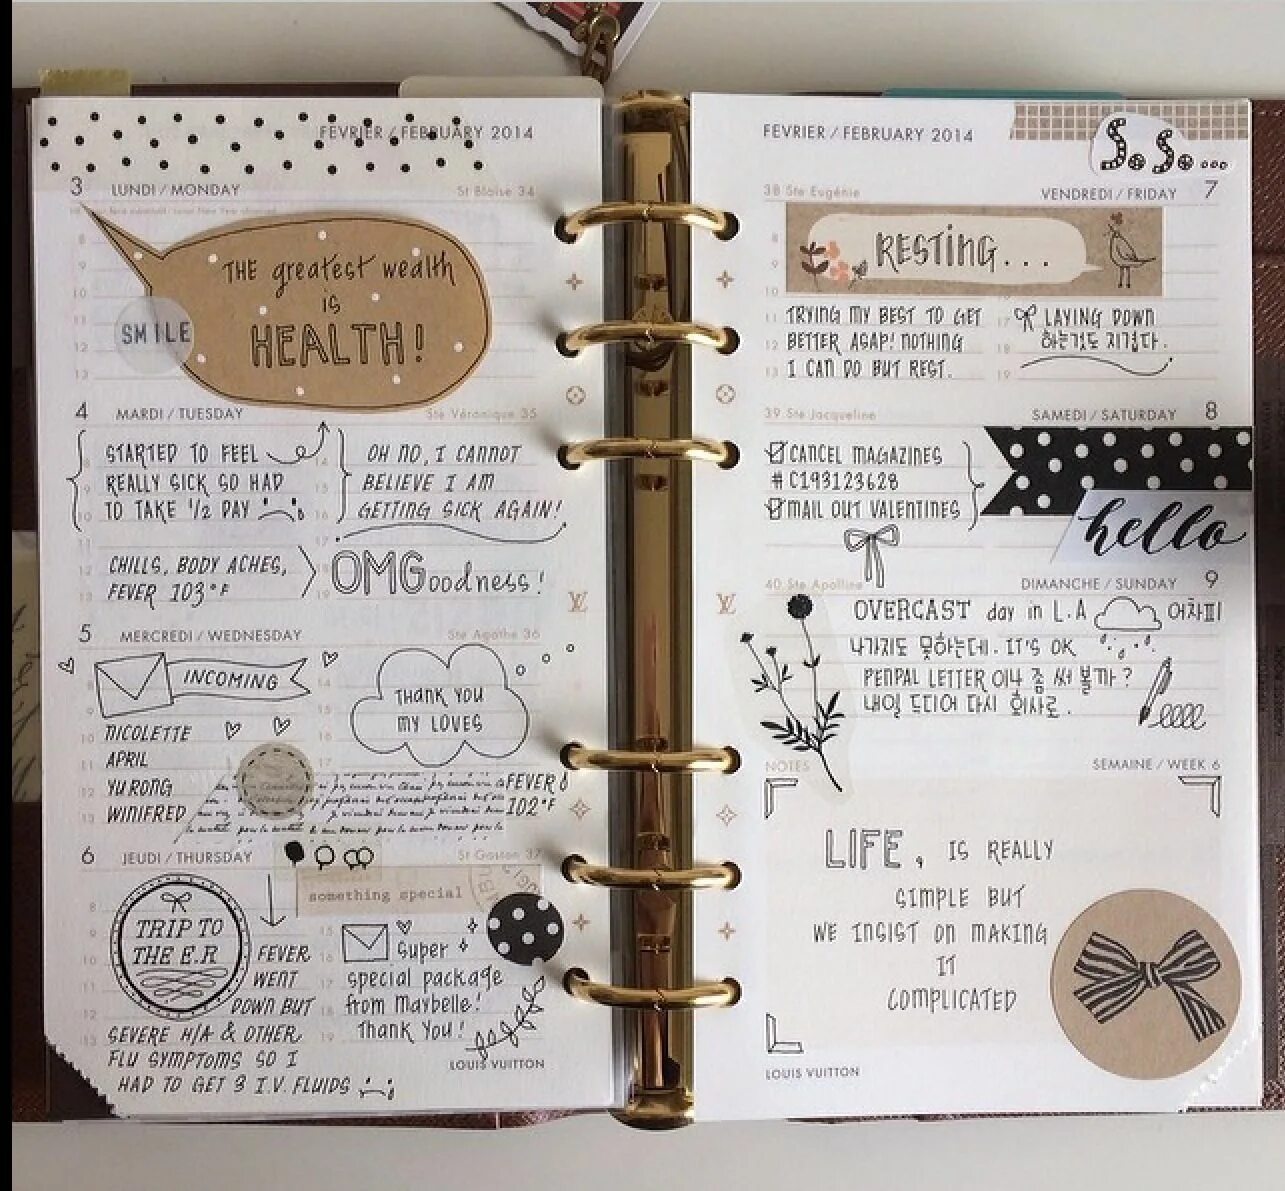 FEVRIER / FEBRUARY 2014
3 LUNDI / MONDAY St Blaise 34
THE greatest wealth
is
HEALTH!
SMILE
4 MARDI / TUESDAY Ste Véronique 35
STARTED TO FEEL
REALLY SICK SO HAD
TO TAKE 1/2 DAY
OH NO, I CANNOT
BELIEVE I AM
GETTING SICK AGAIN!
CHILLS, BODY ACHES,
FEVER 103°F
OMGoodness!
5 MERCREDI / WEDNESDAY Ste Agathe 36
INCOMING
THANK YOU
MY LOVES
NICOLETTE
APRIL
YURONG
WINIFRED
FEVER
102°F
6 JEUDI / THURSDAY St Gaston 37
something special
TRIP TO
THE E.R
FEVER
WENT
DOWN BUT
SEVERE H/A & OTHER
FLU SYMPTOMS SO I
HAD TO GET 3 I.V. FLUIDS
Super
special package
from Maybelle!
Thank You!
LOUIS VUITTON
FEVRIER / FEBRUARY 2014
So So...
38 Ste Eugénie VENDREDI / FRIDAY 7
RESTING...
TRYING MY BEST TO GET
BETTER ASAP! NOTHING
I CAN DO BUT REST.
LAYING DOWN
하는것도 지겹다.
39 Ste Jacqueline SAMEDI / SATURDAY 8
CANCEL MAGAZINES
# C193123628
MAIL OUT VALENTINES
hello
40 Ste Apolline DIMANCHE / SUNDAY 9
OVERCAST day in L.A 어차피
나가지도 못하는데. IT'S OK
PENPAL LETTER 이나 좀 써 볼까?
내일 드디어 다시 회사로.
NOTES SEMAINE / WEEK 6
LIFE, IS REALLY
SIMPLE BUT
WE INSIST ON MAKING
IT
COMPLICATED
LOUIS VUITTON